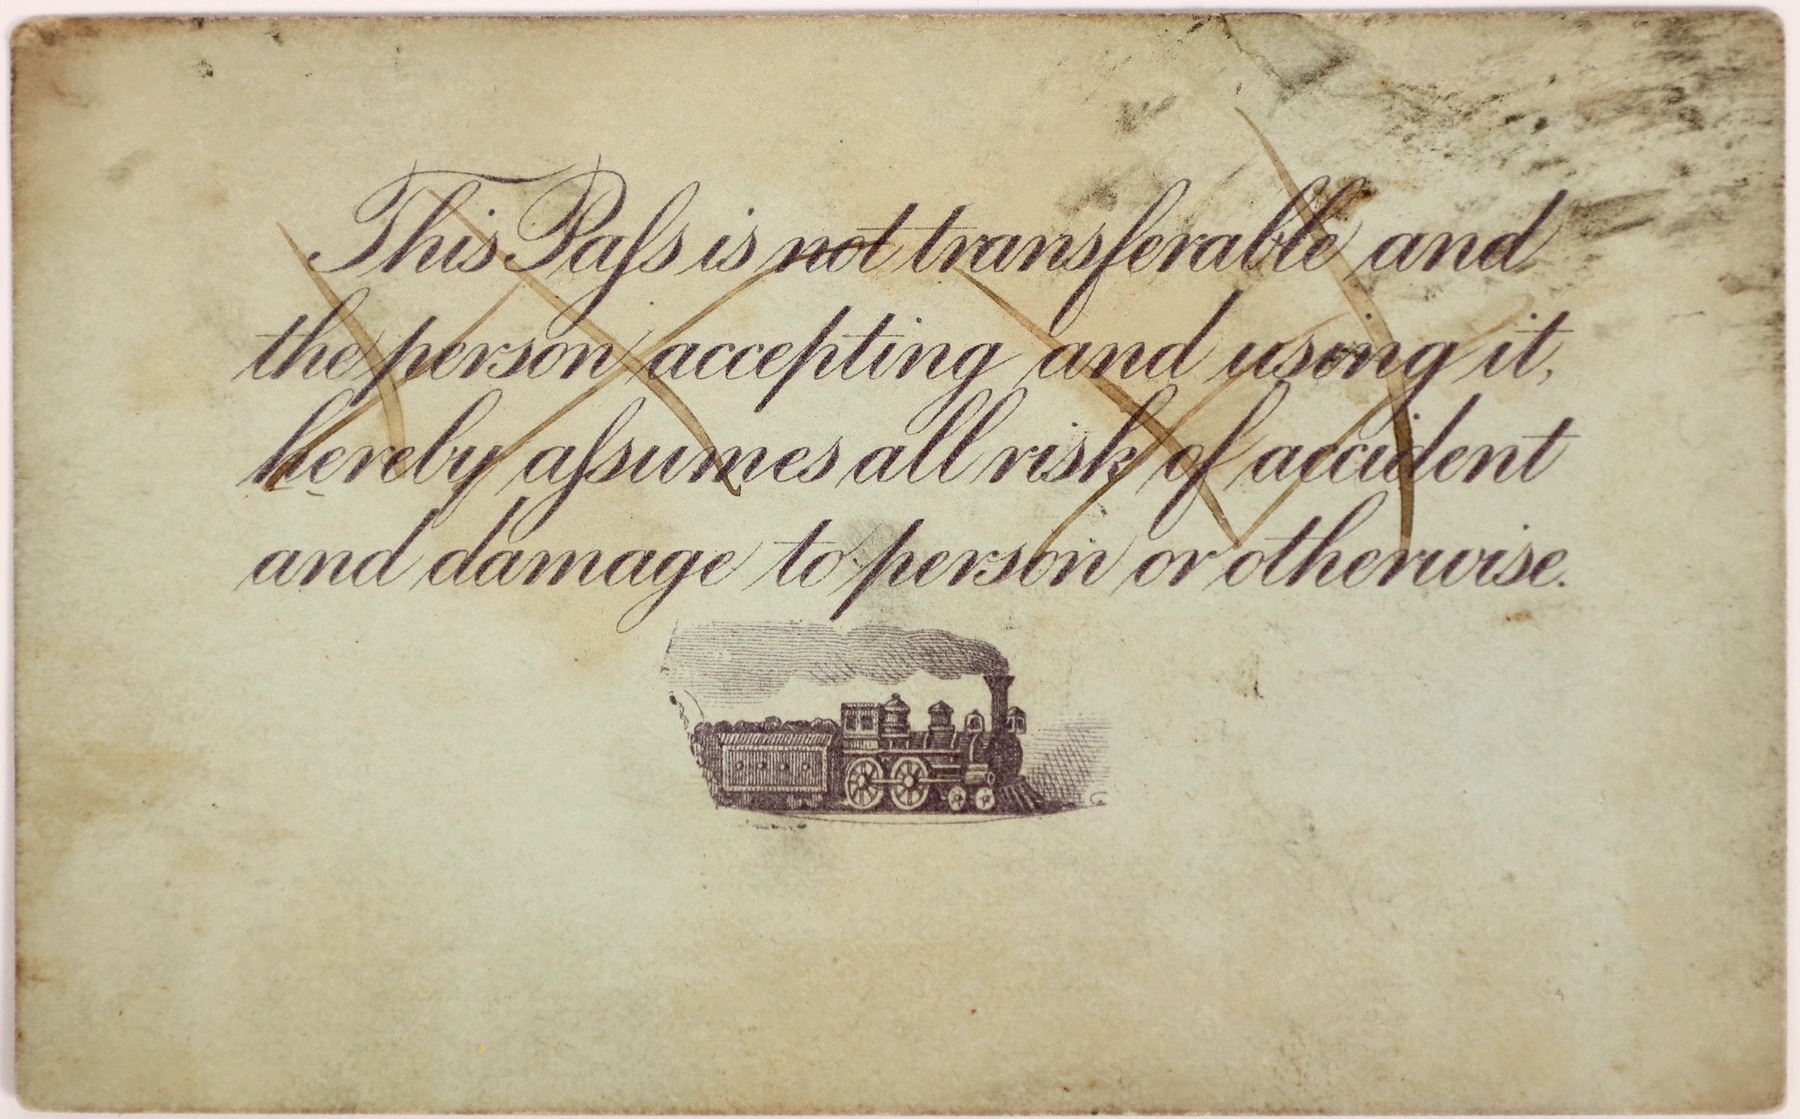 This Paſs is not transferable and
the person accepting and using it,
hereby aſsumes all risk of accident
and damage to person or otherwise.